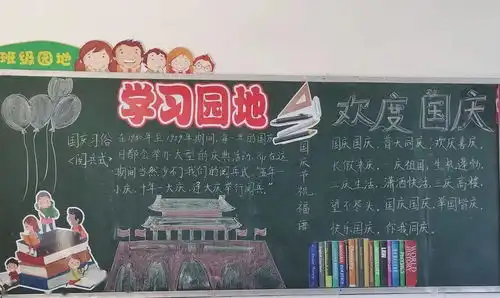 班级园地
学习园地
欢度国庆
国庆习俗
<阅兵式>
在1950年至1959年期间,每一年的国庆
日都会举办大型的庆典活动,而在这
期间当然少不了我们的阅兵式。"五年一
小庆、十年一大庆,逢大庆举行阅兵。"
国庆节祝福语
国庆国庆,普天同庆;欢庆喜庆,
长假半庆。一庆祖国,生机蓬勃,
二庆生活,潇洒快活,三庆高楼,
望不尽头。国庆国庆,举国皆庆,
快乐国庆,你我同庆。
WORLD HISTORY